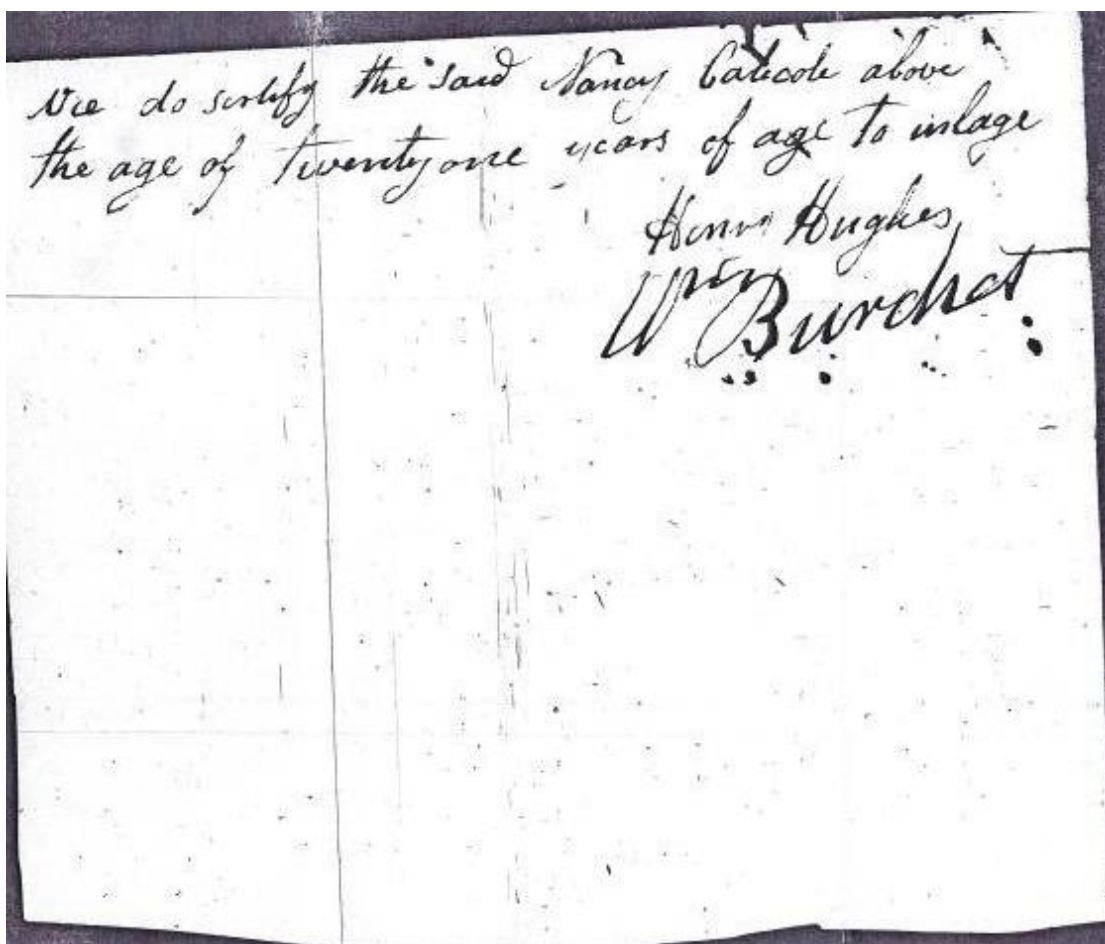 We do sertify the said Nancy Calicote above
the age of twenty one years of age to inlage
Henry Hughes
Wm Burchet